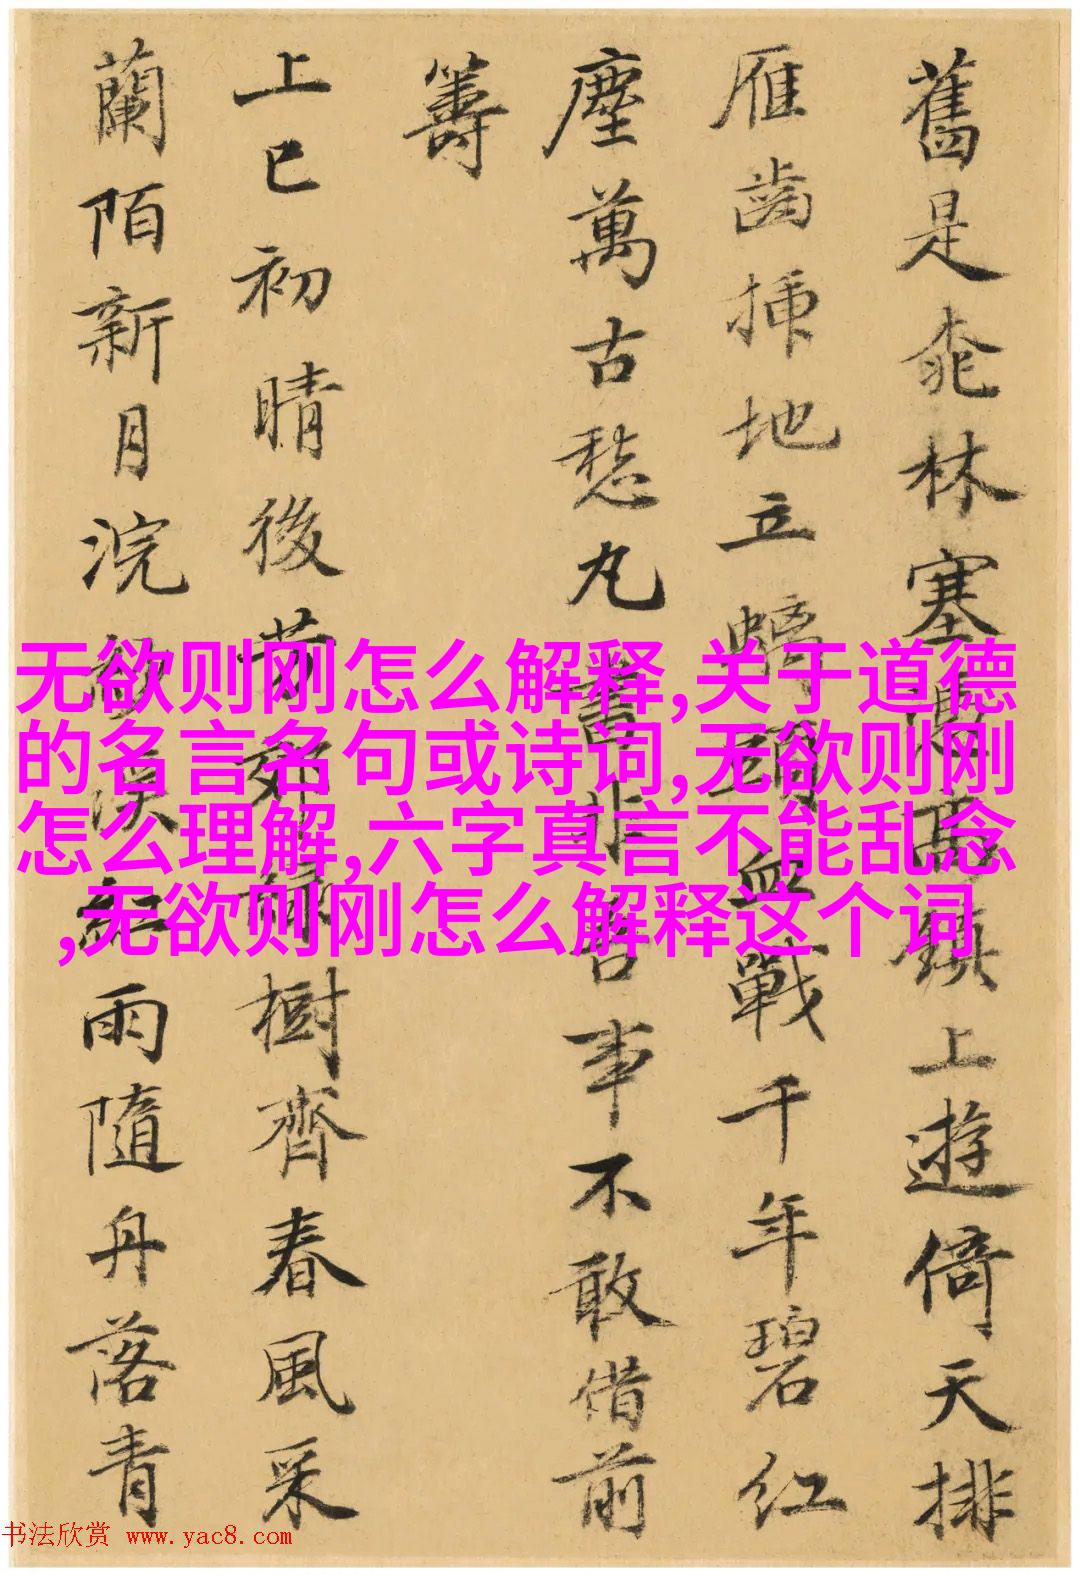 舊是林塞鎮上遊倚天排
雁齒插地立螭頭血戰千年碧紅
塵萬古愁丸書非吾事不敢借前
籌
上巳初晴後芳郊綠樹齊春風采
蘭陌新月浣紗溪紅雨隨舟落青
无欲则刚怎么解释,关于道德
的名言名句或诗词,无欲则刚
怎么理解,六字真言不能乱念
,无欲则刚怎么解释这个词
书法欣赏 www.yac8.com